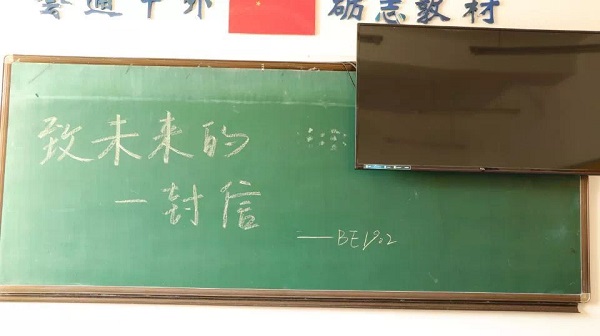 通中外 砺志教材
致未来的
一封信
——BE1902